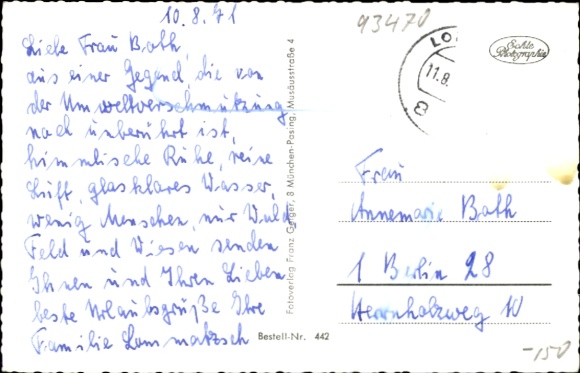 10.8.71
93470
Liebe Frau Bath,
aus einer Gegend, die von
der Umweltverschmutzung
noch unberührt ist,
himmlische Ruhe, reine
Luft, glasklares Wasser,
wenig Menschen, nur Wald,
Feld und Wiesen senden
Ihnen und Ihren Lieben
beste Urlaubsgrüße Ihre
Familie Lommatzsch
Bestell-Nr. 442
Fotoverlag Franz Geiger, 8 München-Pasing, Musäusstraße 4
LO
11.8.
B
Echte
Photographie
Frau
Annemarie Bath
1 Berlin 28
Herrnholzweg 10
-150